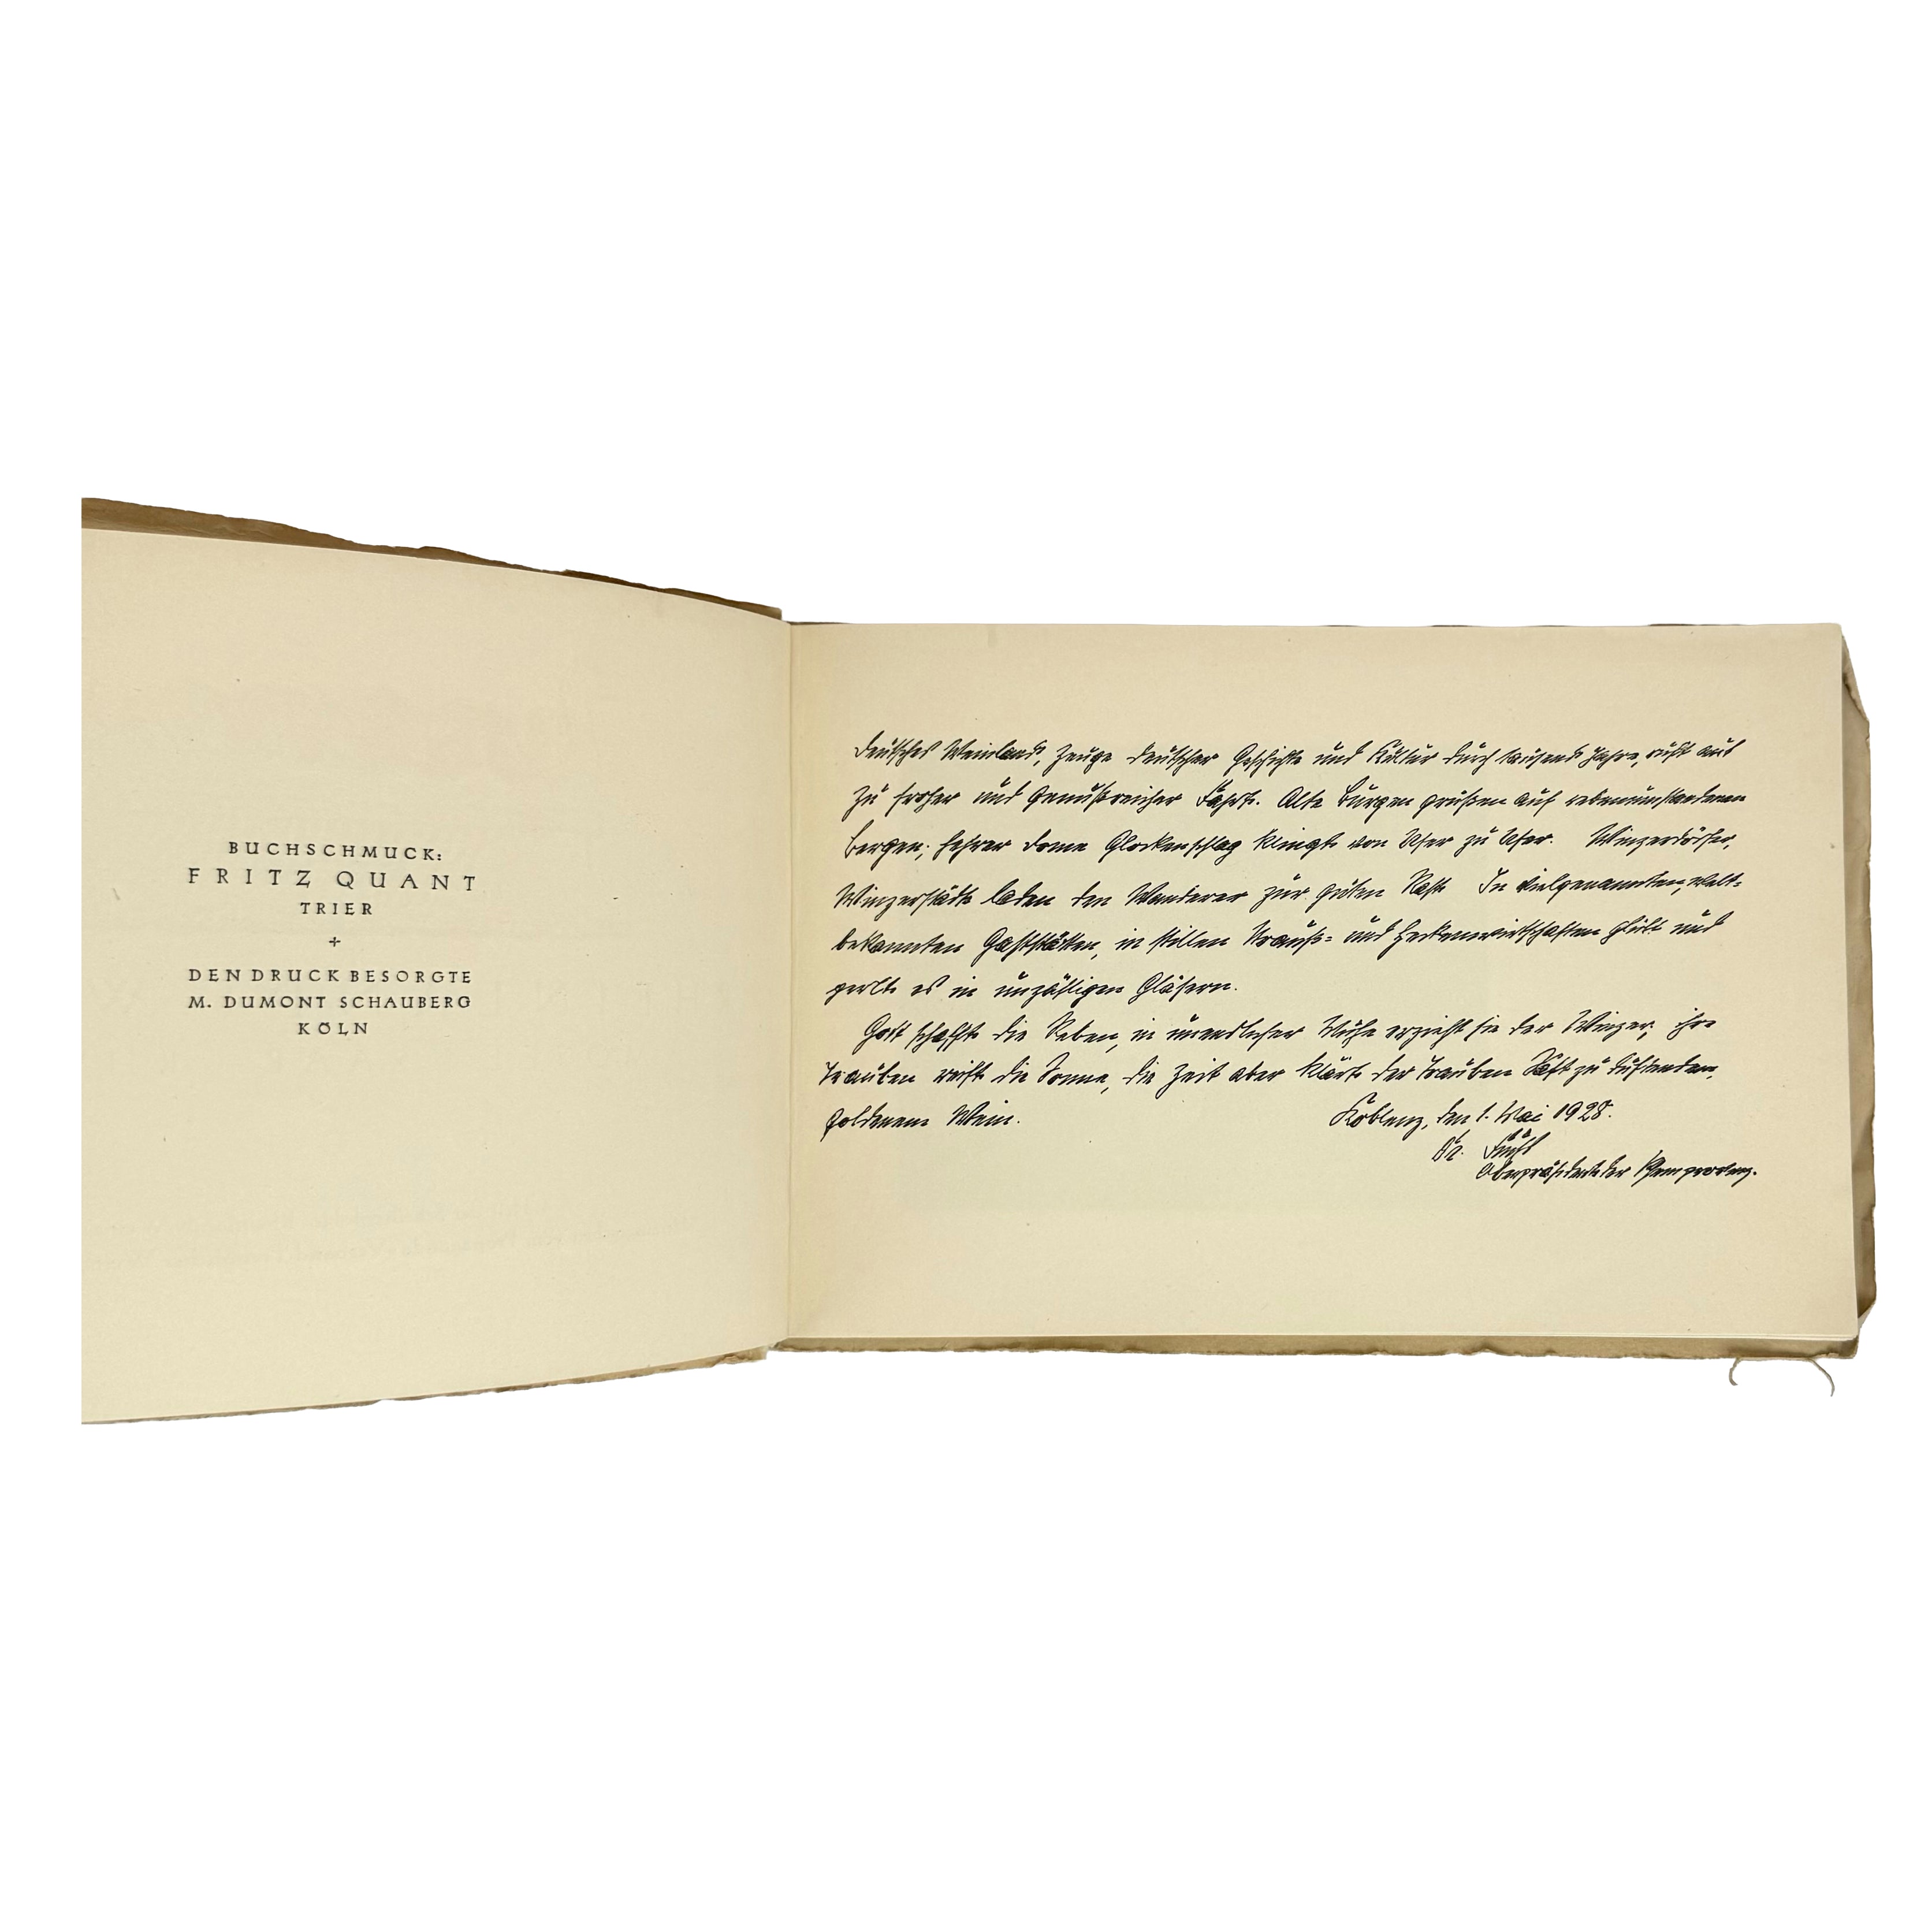 BUCHSCHMUCK:
FRITZ QUANT
TRIER
+
DEN DRUCK BESORGTE
M. DUMONT SCHAUBERG
KÖLN
Deutsches Weinland, Zeuge deutscher Geschichte und Kultur durch tausend Jahre, ruft auf
zu froher und genußreicher Fahrt. Alte Burgen grüßen auf rebenumstandenen
Bergen; hehrer Dome Glockenschlag klingt von Ufer zu Ufer. Winzerdörfer,
Winzerstädte laden den Wanderer zur guten Rast. In vielgenannten, welt-
bekannten Gaststätten, in stillen Strauß- und Heckenwirtschaften glüht und
perlt es in unzähligen Gläsern.
Gott schafft die Reben, in unendlicher Mühe erzieht sie der Winzer; ihre
Trauben reift die Sonne, die Zeit aber klärt der Trauben Saft zu duftendem,
goldenem Wein.
Koblenz, den 1. Mai 1928.
Dr. Fuchs
Oberpräsident der Rheinprovinz.